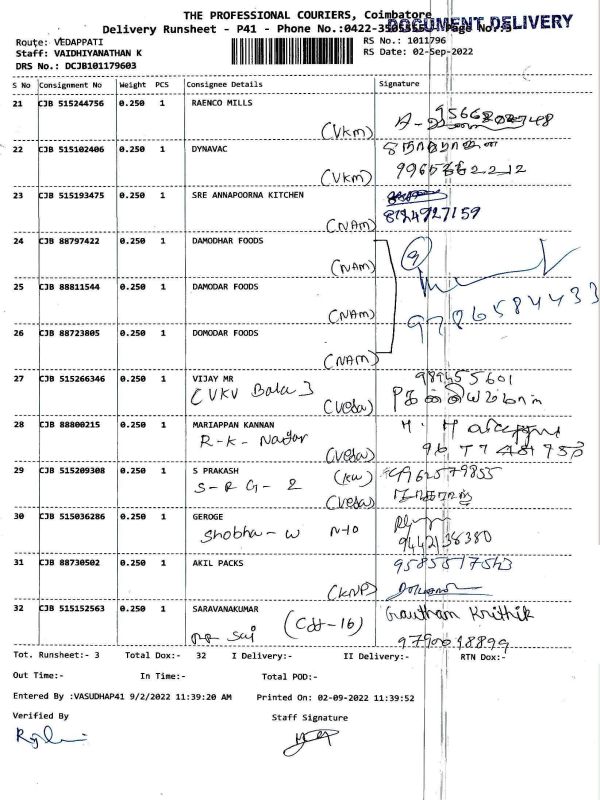 THE PROFESSIONAL COURIERS, Coimbatore
DOCUMENT DELIVERY
Delivery Runsheet - P41 - Phone No.:0422-
Route: VEDAPPATI
RS No.: 1011796
Staff: VAIDHIYANATHAN K
RS Date: 02-Sep-2022
DRS No.: DCJB101179603
S No Consignment No Weight PCS Consignee Details Signature
21 CJB 515244756 0.250 1 RAENCO MILLS
(Vkm)
22 CJB 515102406 0.250 1 DYNAVAC
(Vkm)
23 CJB 515193475 0.250 1 SRE ANNAPOORNA KITCHEN
(NAM) 8124727159
24 CJB 88797422 0.250 1 DAMODHAR FOODS
(NAM)
25 CJB 88811544 0.250 1 DAMODAR FOODS
(NAM) 9786584433
26 CJB 88723805 0.250 1 DOMODAR FOODS
(NAM)
27 CJB 515266346 0.250 1 VIJAY MR 9894555601
(VKV Bala)
(Veda)
28 CJB 88800215 0.250 1 MARIAPPAN KANNAN
R-K-Nagar
(Veda)
29 CJB 515209308 0.250 1 S PRAKASH (KW)
S-RG-2
(Veda)
30 CJB 515036286 0.250 1 GEROGE
Shobha-W N-10 9442138380
31 CJB 88730502 0.250 1 AKIL PACKS 9585517543
(KNP)
32 CJB 515152563 0.250 1 SARAVANAKUMAR Gautham Krithik
Sai
Tot. Runsheet:- 3 Total Dox:- 32 I Delivery:- II Delivery:- RTN Dox:-
Out Time:- In Time:- Total POD:-
Entered By :VASUDHAP41 9/2/2022 11:39:20 AM Printed On: 02-09-2022 11:39:52
Verified By Staff Signature